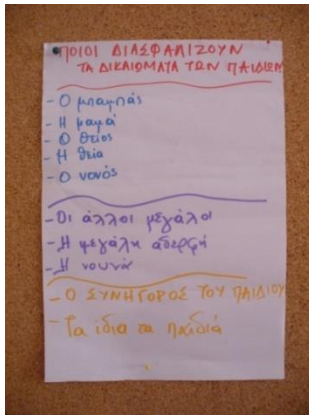 ΠΟΙΟΙ ΔΙΑΣΦΑΛΙΖΟΥΝ
ΤΑ ΔΙΚΑΙΩΜΑΤΑ ΤΩΝ ΠΑΙΔΙΩΝ
- Ο μπαμπάς
- Η μαμά
- Ο θείος
- Η θεία
- Ο νονός
- Οι άλλοι μεγάλοι
- Η μεγάλη αδερφή
- Η νουνά
- Ο ΣΥΝΗΓΟΡΟΣ ΤΟΥ ΠΑΙΔΙΟΥ
- Τα ίδια τα παιδιά